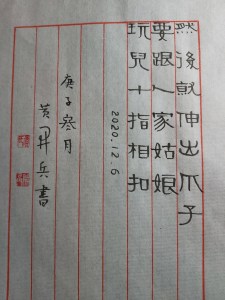 然後就伸出爪子
要跟人家姑娘
玩兒十指相扣
2020.12.6
庚子叁月
兵書